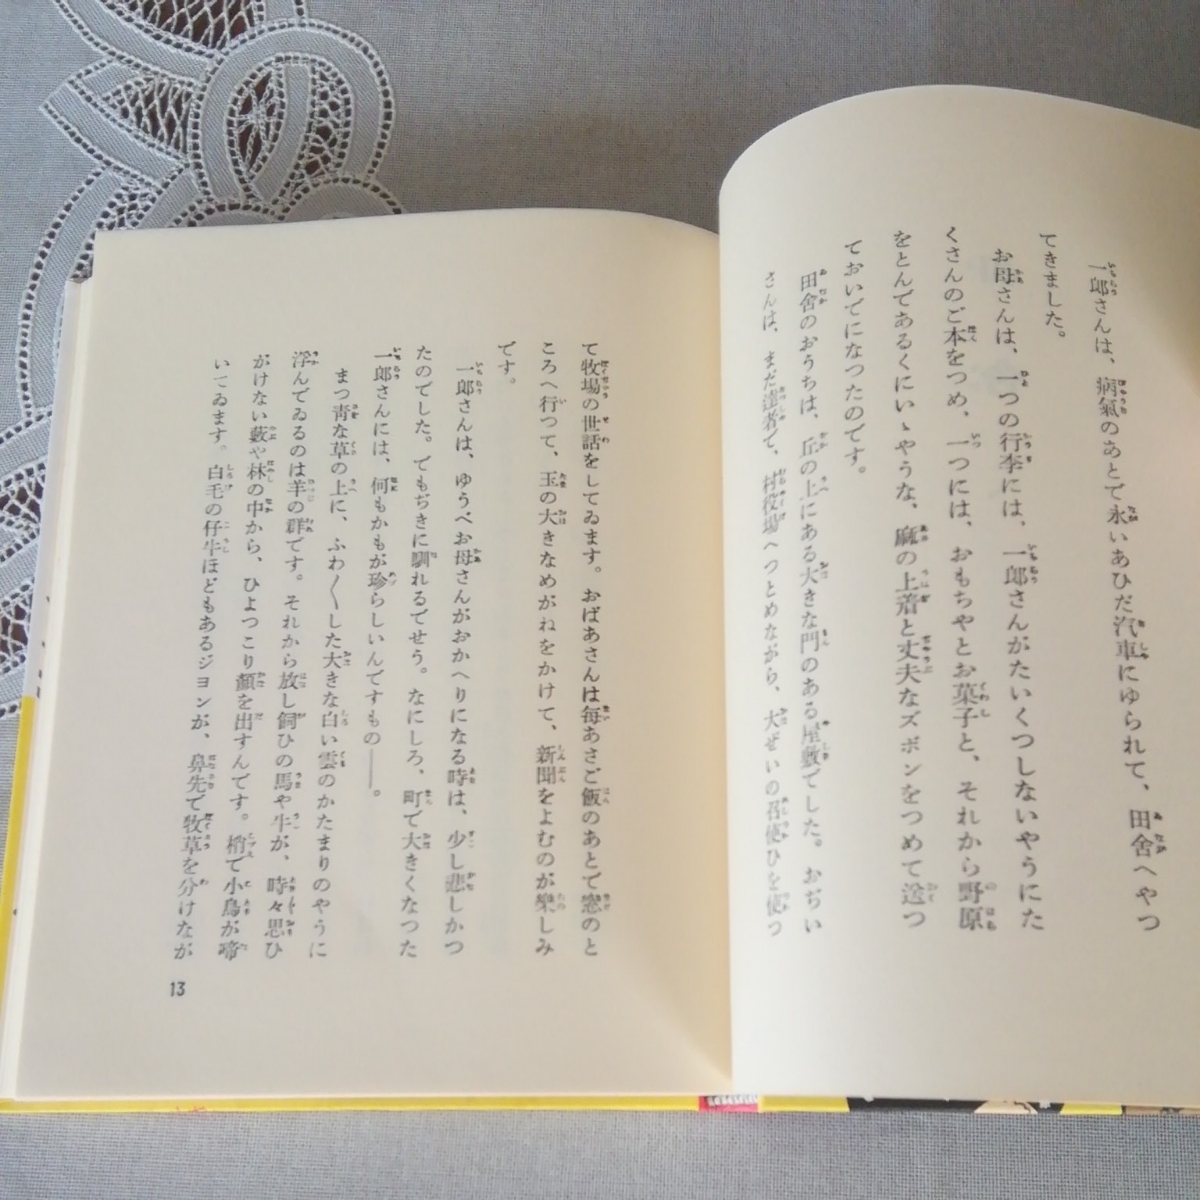 一郎さんは、病氣のあとで永いあひだ汽車にゆられて、田舍へやつ
てきました。
お母さんは、一つの行李には、一郎さんがたいくつしないやうにた
くさんのご本をつめ、一つには、おもちやとお菓子と、それから野原
をとんであるくにいゝやうな、麻の上着と丈夫なズボンをつめて送つ
ておいでになつたのです。
田舍のおうちは、丘の上にある大きな門のある屋敷でした。おぢい
さんは、まだ達者で、村役場へつとめながら、大ぜいの召使ひを使つ
て牧場の世話をしてゐます。おばあさんは每あさご飯のあとで窓のと
ころへ行つて、玉の大きなめがねをかけて、新聞をよむのが樂しみ
です。
一郎さんは、ゆうべお母さんがおかへりになる時は、少し悲しかつ
たのでした。でもぢきに馴れるでせう。なにしろ、町で大きくなつた
一郎さんには、何もかもが珍らしいんですもの――。
まつ靑な草の上に、ふわ〱した大きな白い雲のかたまりのやうに
浮んでゐるのは羊の群です。それから放し飼ひの馬や牛が、時々思ひ
がけない藪や林の中から、ひよつこり顏を出すんです。梢で小鳥が啼
いてゐます。白毛の仔牛ほどもあるジヨンが、鼻先で牧草を分けなが
13